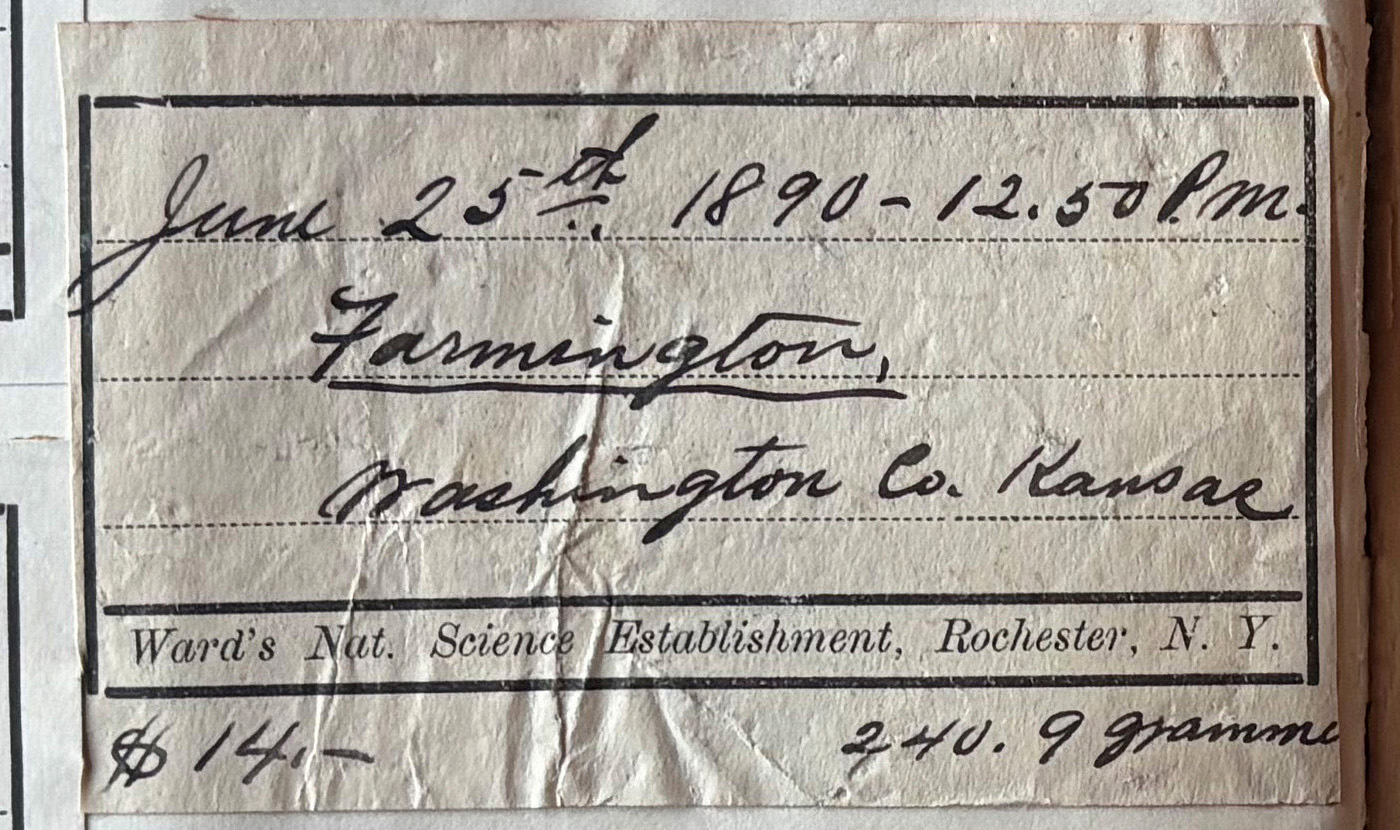 June 25th 1890 - 12.50 P.M.
Farmington,
Washington Co. Kansas
Ward's Nat. Science Establishment, Rochester, N. Y.
$ 14.-
240.9 gramme